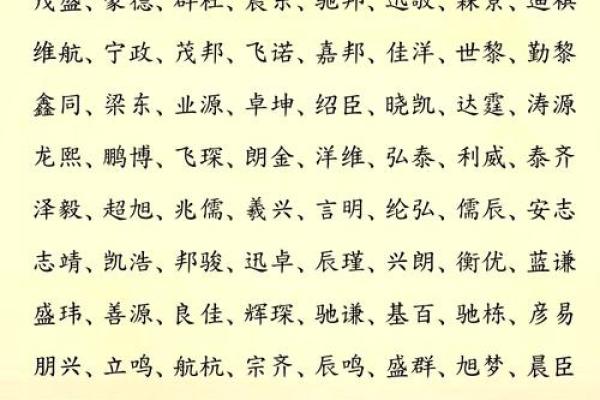 茂盛、蒙德、群杜、震东、驰邦、迅敬、霖景、迪祺
维航、宁政、茂邦、飞诺、嘉邦、佳洋、世黎、勤黎
鑫同、梁东、业源、卓坤、绍臣、晓凯、达霆、涛源
龙熙、鹏博、飞琛、朗金、洋维、弘泰、利威、泰齐
泽毅、超旭、兆儒、羲兴、言明、纶弘、儒辰、安志
志靖、凯浩、邦骏、迅卓、辰瑾、兴朗、衡优、蓝谦
盛玮、善源、良佳、辉琛、驰谦、基百、驰栋、彦易
朋兴、立鸣、航杭、宗齐、辰鸣、盛群、旭梦、晨臣